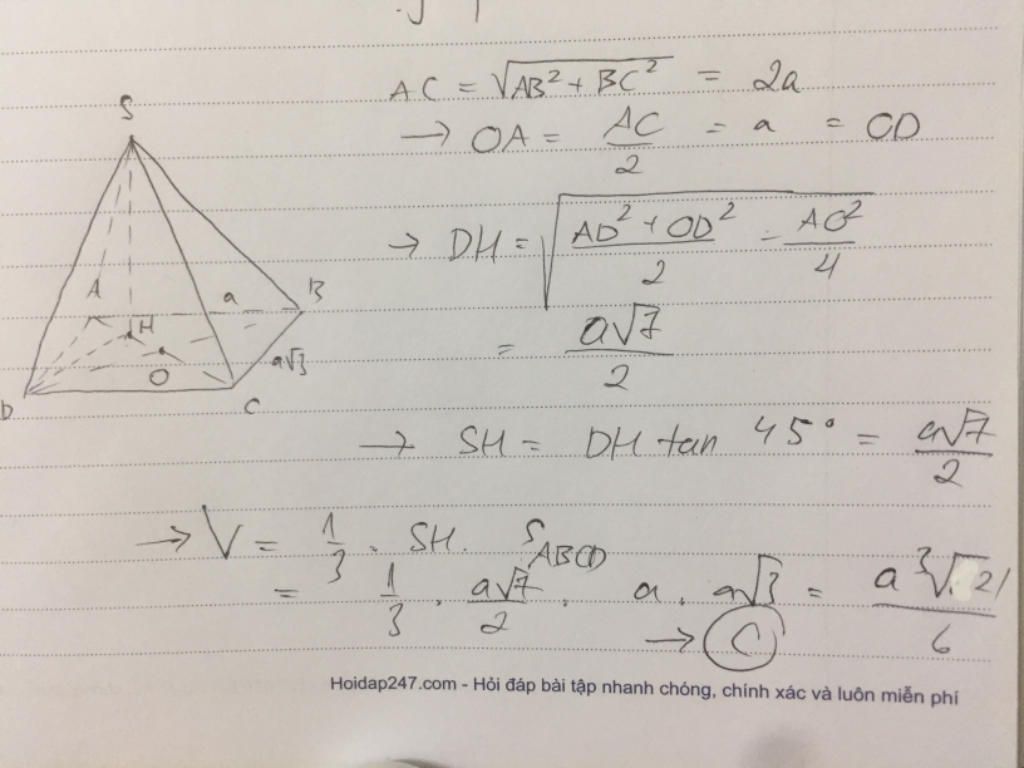 AC = √AB² + BC² = 2a
→ OA = AC/2 = a = OD
→ DH = √(AD² + OD²)/2 - AO²/4
= a√7/2
→ SH = DH tan 45° = a√7/2
→ V = 1/3 . SH. S ABCD
= 1/3 . a√7/2 . a . a√3 = a³√21/6
→ C
S
A
a
B
H
a√3
O
D
C
Hoidap247.com - Hỏi đáp bài tập nhanh chóng, chính xác và luôn miễn phí